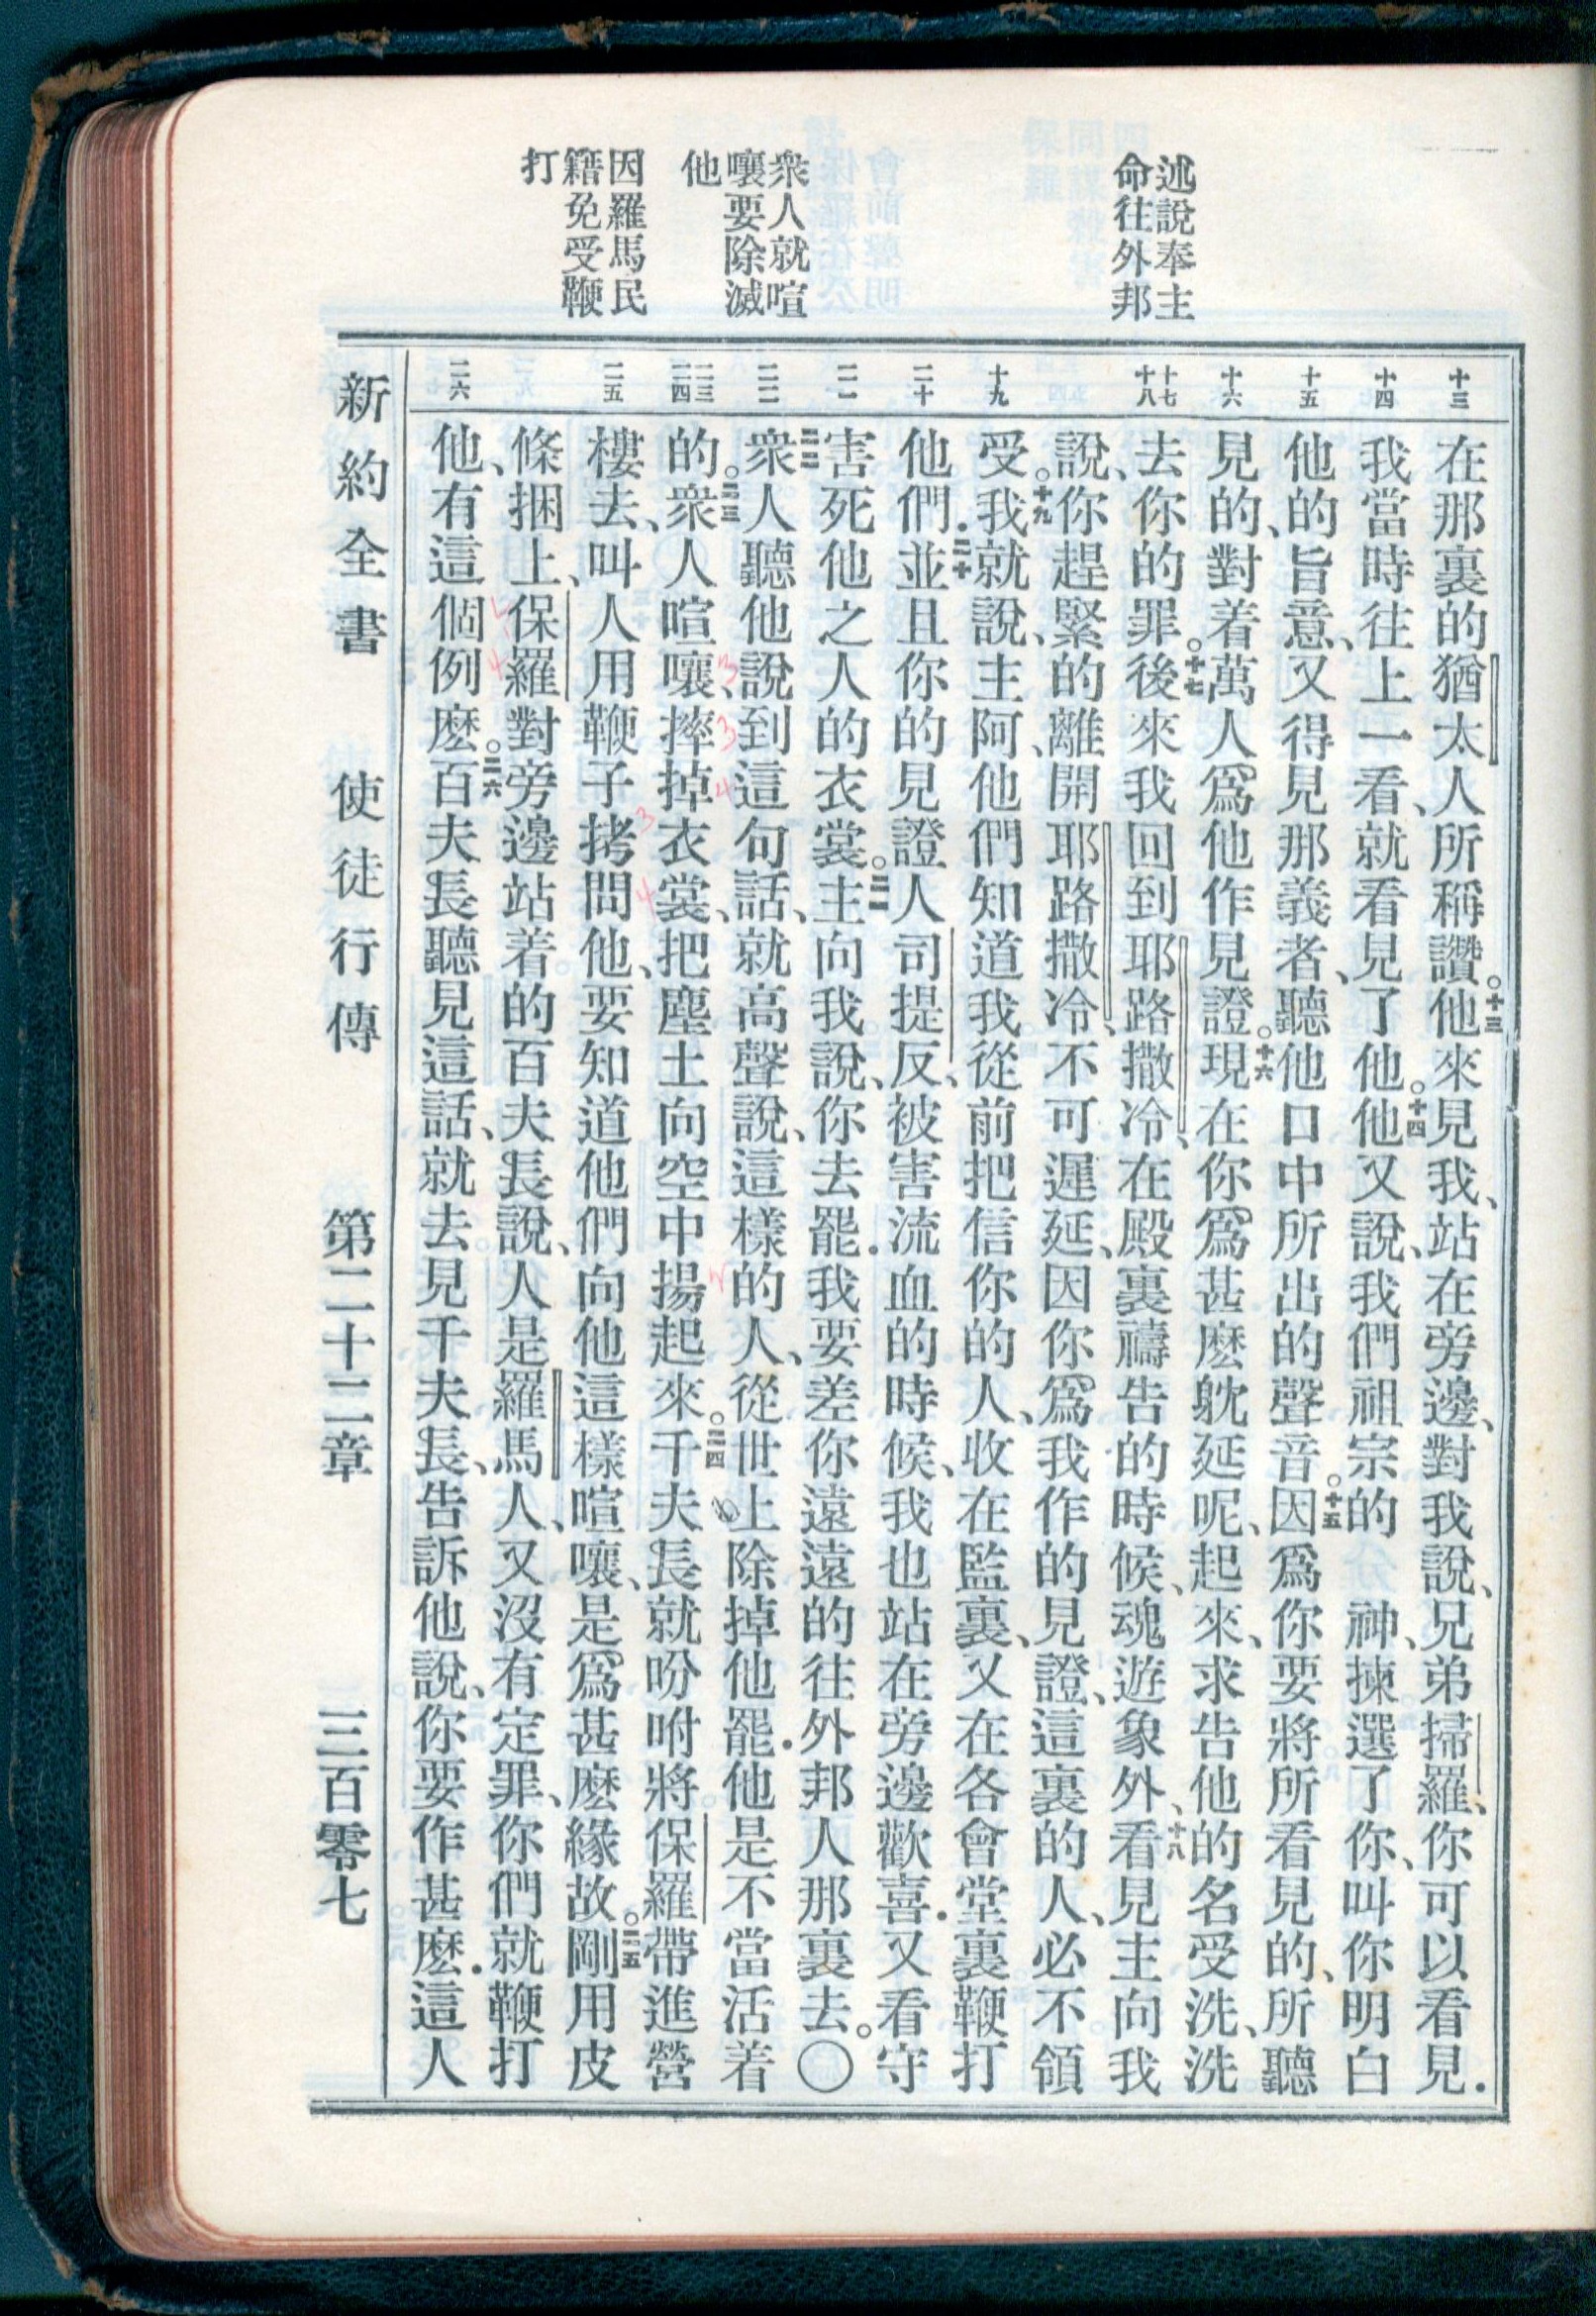 述說奉主
命往外邦
衆人就喧
嚷要除滅
他
因羅馬民
籍免受鞭
打
十三
十四
十五
十六
十七
十八
十九
二十
二一
二二
二三
二四
二五
二六
在那裏的猶太人所稱讚。十三他來見我、站在旁邊、對我說、兄弟掃羅、你可以看見．
我當時往上一看、就看見了他。十四他又說、我們祖宗的　神、揀選了你、叫你明白
他的旨意、又得見那義者、聽他口中所出的聲音。十五因爲你要將所看見的、所聽
見的、對着萬人爲他作見證。十六現在你爲甚麽躭延呢、起來、求告他的名受洗、洗
去你的罪。十七後來我回到耶路撒冷、在殿裏禱告的時候、魂遊象外、十八看見主向我
說、你趕緊的離開耶路撒冷、不可遲延、因你爲我作的見證、這裏的人、必不領
受。十九我就說、主阿、他們知道我從前把信你的人、收在監裏、又在各會堂裏鞭打
他們．二十並且你的見證人司提反、被害流血的時候、我也站在旁邊歡喜．又看守
害死他之人的衣裳。二一主向我說、你去罷．我要差你遠遠的往外邦人那裏去。〇
二二衆人聽他說到這句話、就高聲說、這樣的人、從世上除掉他罷．他是不當活着
的。二三衆人喧嚷、摔掉衣裳、把塵土向空中揚起來。二四千夫長就吩咐將保羅帶進營
樓去、叫人用鞭子拷問他、要知道他們向他這樣喧嚷、是爲甚麽緣故。二五剛用皮
條捆上、保羅對旁邊站着的百夫長說、人是羅馬人、又沒有定罪、你們就鞭打
他、有這個例麽。二六百夫長聽見這話、就去見千夫長、告訴他說、你要作甚麽．這人
新約全書　使徒行傳　第二十二章　三百零七